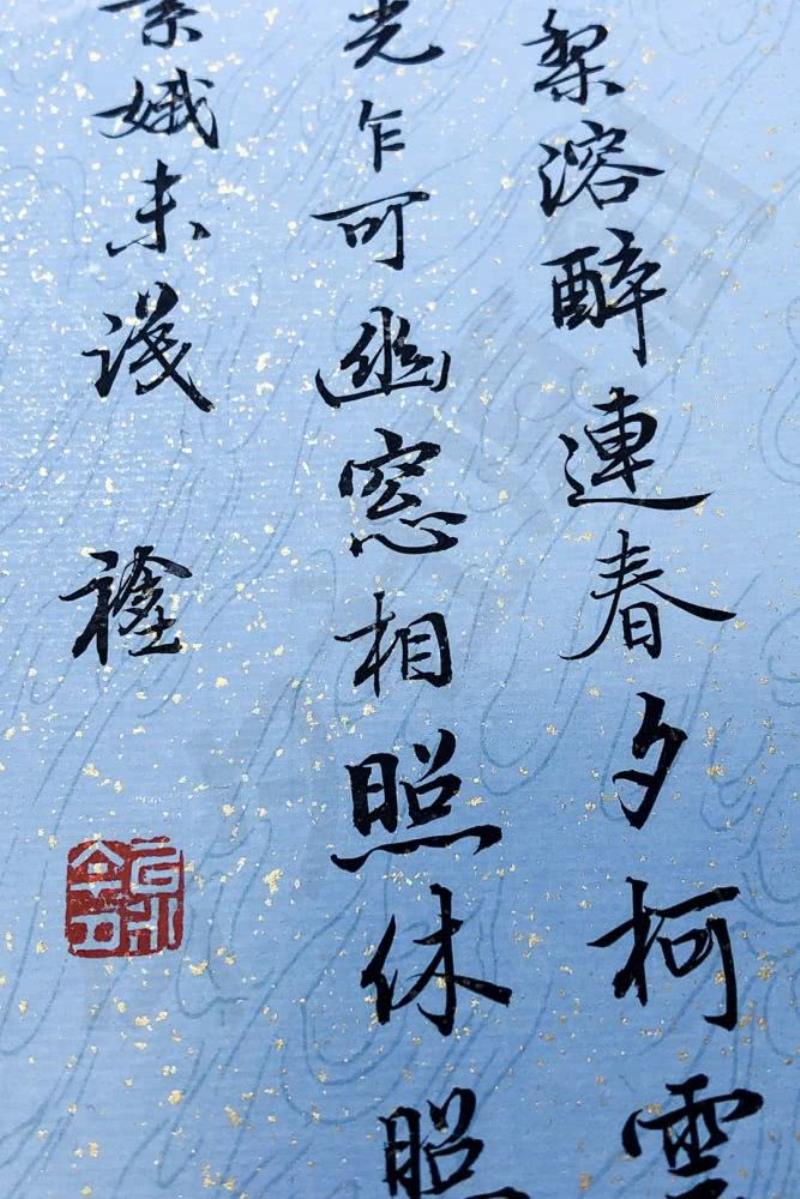 梨溶醉連春夕柯雲
光乍可幽窓相照休照
素娥未識